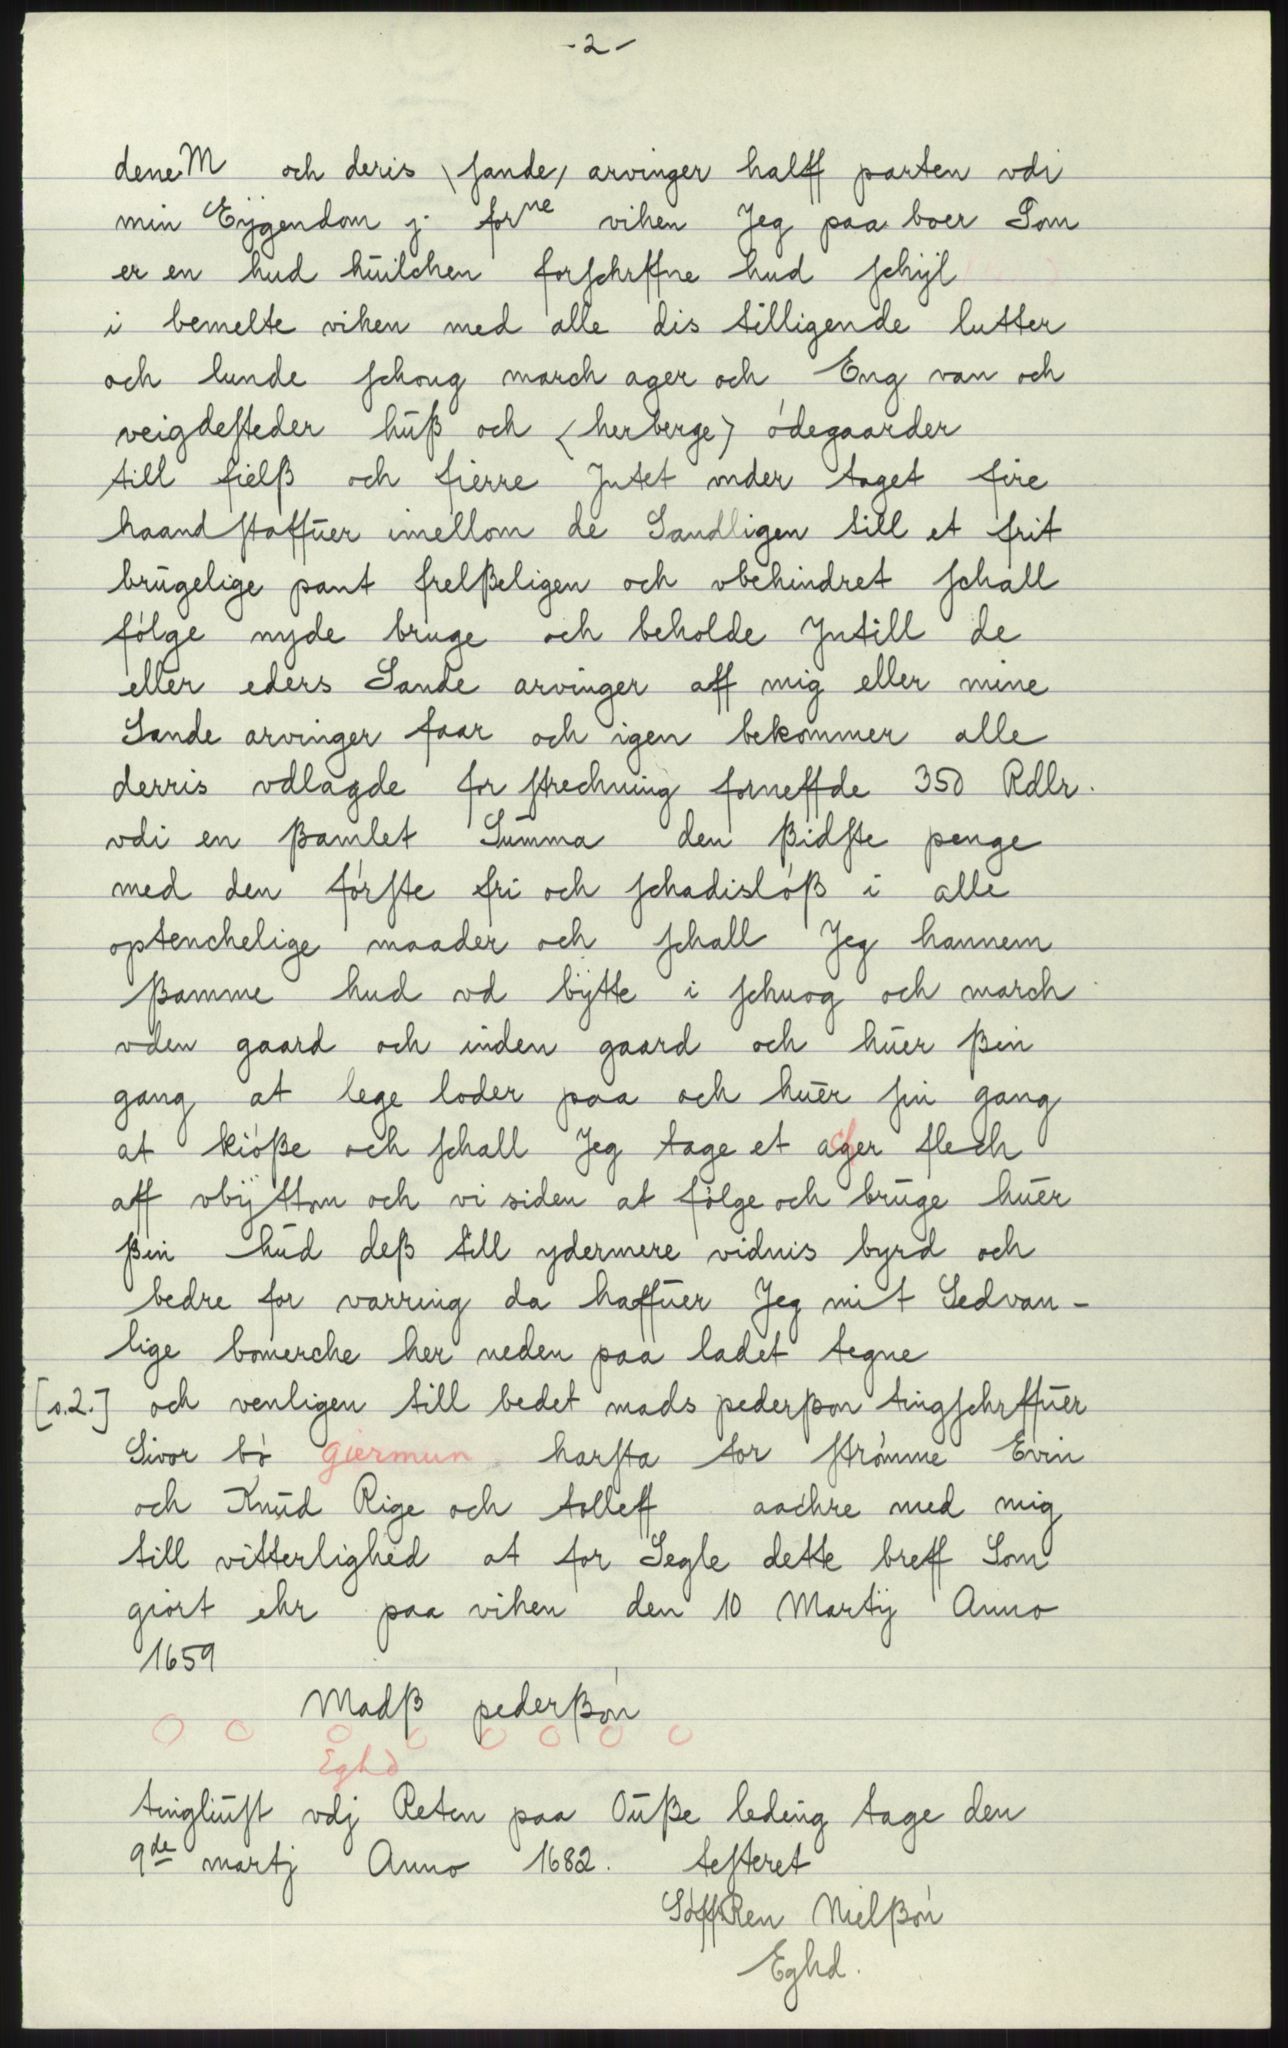 -2-
dene M och deris \sande/ arvinger halff parten vdi
min Eÿgendom j forne viken Jeg paa boer Som
er en hud huilchen forschrffne hud schÿl
i bemelte viken med alle dis tilligende lutter
och lunde schoug march ager och Eng van och
veigdesteder huß och <herberge> ódegaarder
till fielß och fierre Jntet under taget fire
haand staffuer imellom de Sandligen till et frit
brugelige pant frelßeligen och vbehindret schall
fólge nyde bruge och beholde Jntill de
eller eders Sande arvinger aff mig eller mine
Sande arvinger faar och igen bekommer alle
derris vdlagde for strechning forneffde 350 Rdlr.
vdi en ßamlet Summa den ßidste penge
med den fórste fri och schadislóß i alle
optenchelige maader och schall Jeg hannem
ßamme hud vd bÿtte i schuog och march
vden gaard och inden gaard och huer ßin
gang at lege loder paa och huer sin gang
at kióße och schall Jeg tage et ager flech
aff vbÿttom och vi siden at fólge och bruge huer
ßin hud deß till ydermere vidnis byrd och
bedre for varring da haffuer Jeg mit Sedvan-
lige bomerche her neden paa ladet tegne
[s.2.] och venligen till bedet mads pederßon tingschrffuer
Sivor bó giermun harsta tor strómme Evin
och Knud Rige och tolleff aachre med mig
till vitterlighed at for Segle dette breff Som
giort ehr paa viken den 10 Martÿ Anno
1659
Madß pederßón
O O O O O O O O
Eghd
tingliust vdj Reten paa Ouße leding tage den
9de martj Anno 1682. testeret
SóffRen Nielßón
Eghd.